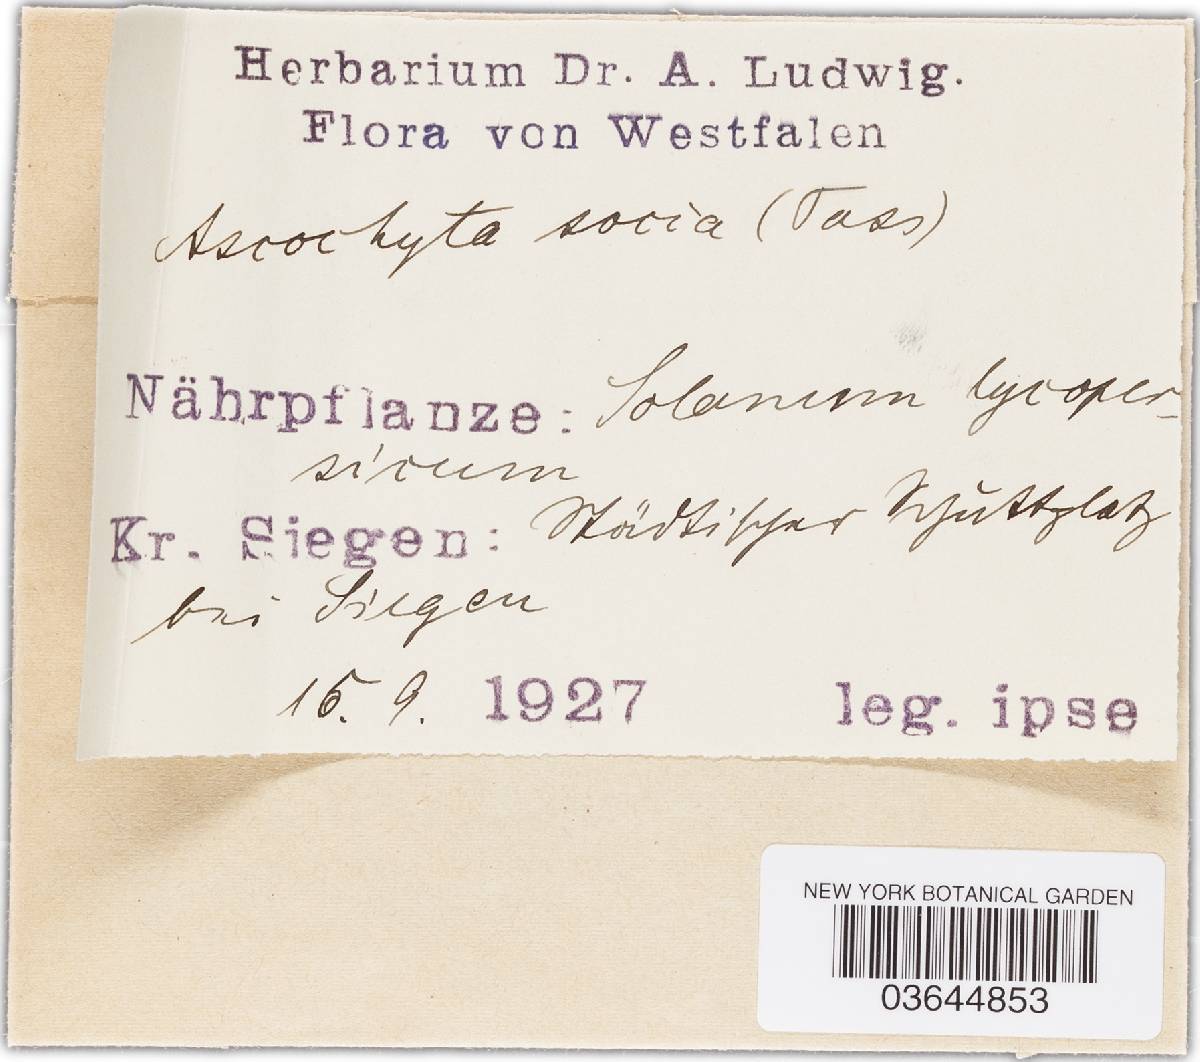 Herbarium Dr. A. Ludwig.
Flora von Westfalen
Ascochyta socia (Pass)
Nährpflanze: Solanum lycoper-
sicum
Kr. Siegen: Städtischer Schuttplatz
bei Siegen
15. 9. 1927 leg. ipse
NEW YORK BOTANICAL GARDEN
03644853